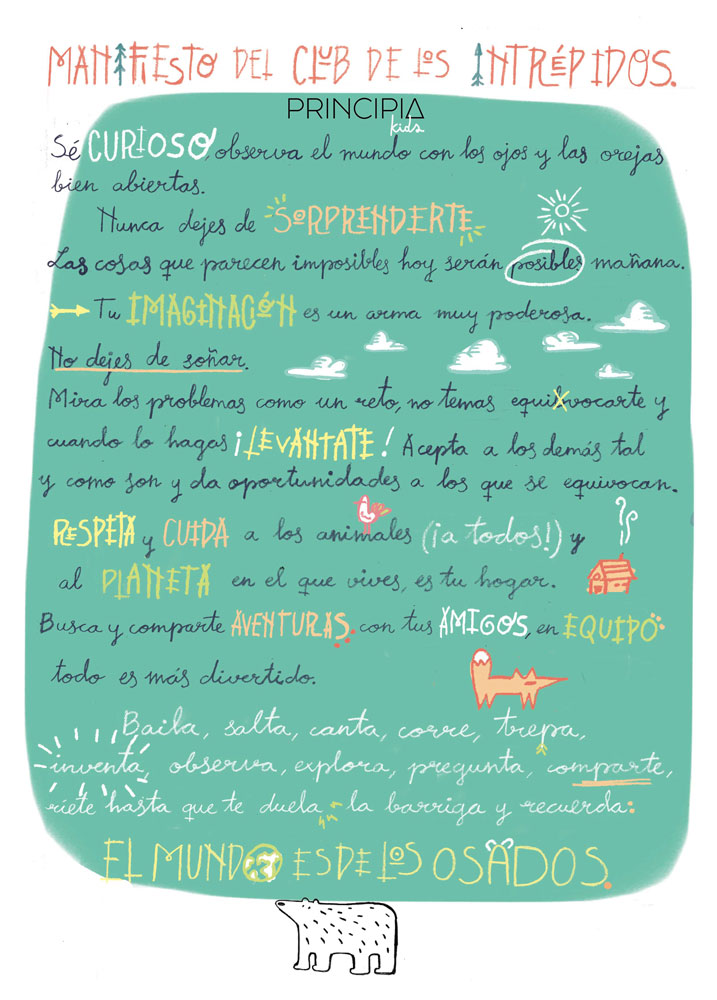 MANIFIESTO DEL CLUB DE LOS INTRÉPIDOS.
PRINCIPIA
kids
Sé CURIOSO, observa el mundo con los ojos y las orejas
bien abiertas.
Nunca dejes de SORPRENDERTE
Las cosas que parecen imposibles hoy serán posibles mañana.
Tu IMAGINACÓN es un arma muy poderosa.
No dejes de soñar.
Mira los problemas como un reto, no temas equivocarte y
cuando lo hagas ¡LEVÁNTATE! Acepta a los demás tal
y como son y da oportunidades a los que se equivocan.
RESPETA y CUIDA a los animales (¡a todos!) y
al PLANETA en el que vives, es tu hogar.
Busca y comparte AVENTURAS con tus AMIGOS, en EQUIPO
todo es más divertido.
Baila, salta, canta, corre, trepa,
inventa, observa, explora, pregunta, comparte,
ríete hasta que te duela la barriga y recuerda:
EL MUNDO ES DE LOS OSADOS.